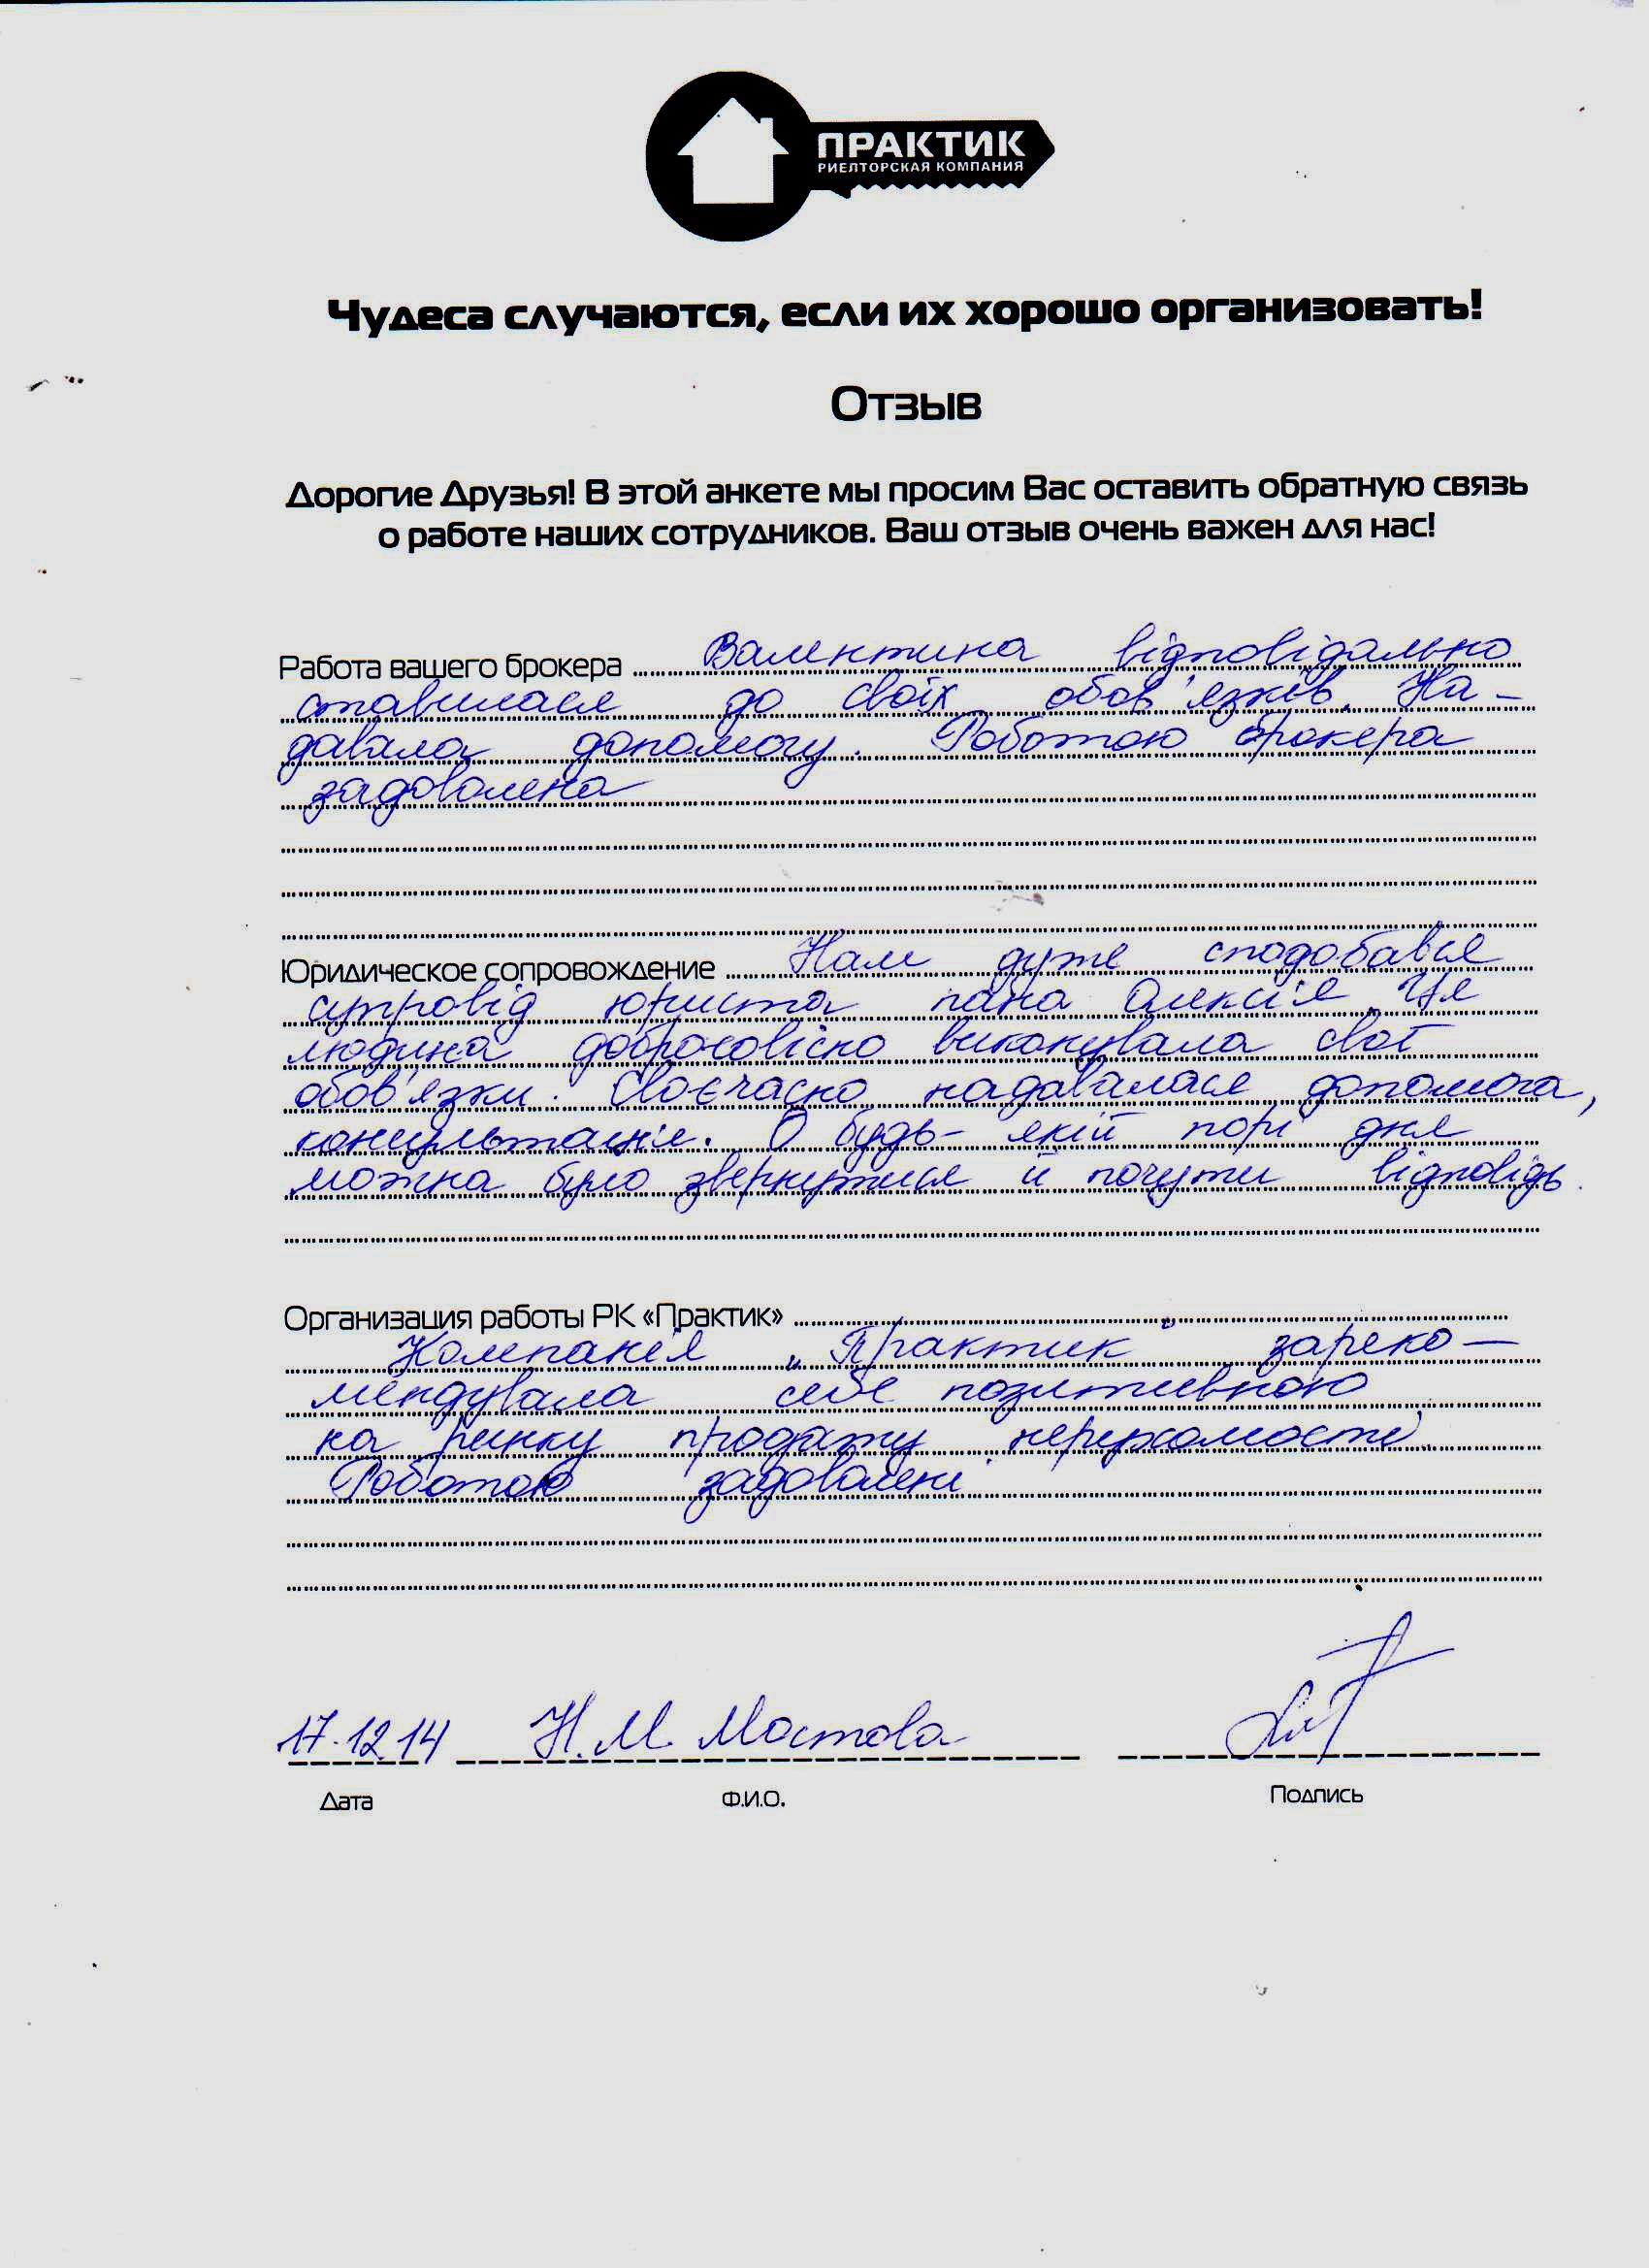 ПРАКТИК
РИЕЛТОРСКАЯ КОМПАНИЯ
Чудеса случаются, если их хорошо организовать!
Отзыв
Дорогие Друзья! В этой анкете мы просим Вас оставить обратную связь
о работе наших сотрудников. Ваш отзыв очень важен для нас!
Работа вашего брокера Валентина відповідально
ставилася до своїх обов'язків. На-
давала допомогу. Роботою брокера
задоволена
Юридическое сопровождение Нам дуже сподобався
супровід юриста пана Олексія. Ця
людина добросовісно виконувала свої
обов'язки. Своєчасно надавалася допомога,
консультація. О будь-якій порі дня
можна було звернутися й почути відповідь.
Организация работы РК «Практик»
Компанія „Практик" зареко-
мендувала себе позитивною
на ринку продажу нерухомості.
Роботою задоволені
17.12.14 Н.М. Мостова
Дата Ф.И.О. Подпись